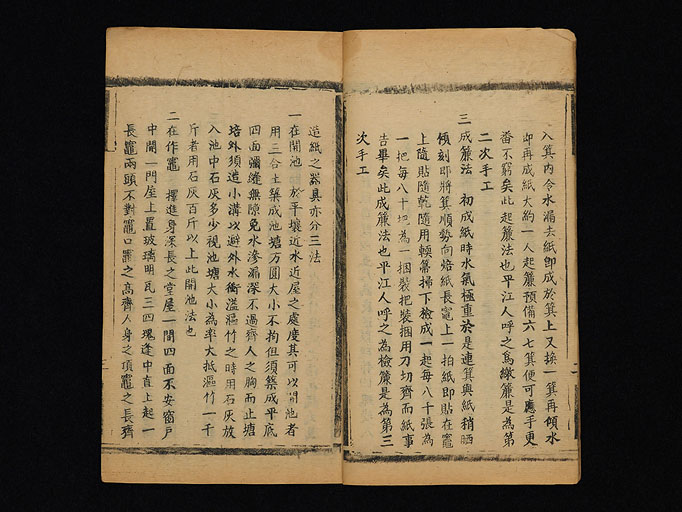 入箕內令水漏去紙即成於箕上又換一箕再傾水
即再成紙大約一人起簾預備六七箕便可應手更
番不窮矣此起簾法也平江人呼之為繳簾是為第
二次手工
三成簾法 初成紙時水氣極重於是連箕與紙稍晒
傾刻即將箕順勢向焙紙長竈上一拍紙即貼在竈
上隨貼隨乾隨用輭帚掃下檢成一起每八十張為
一把每八十把為一捆裝把裝捆用刀切齊而紙事
告畢矣此成簾法也平江人呼之為檢簾是為第三
次手工
造紙之器具亦分三法
一在開池 於平壤近水近屋之處度其可以開池者
用三合土築成池塘方圓大小不拘但須築成平底
四面彌縫無隙免水滲漏深不過齊人之胸而止塘
培外須造小溝以避外水衝溢漚竹之時用石灰放
入池中石灰多少視池塘大小為率大抵漚竹一千
斤者用石灰百斤以上此開池法也
二在作竈 擇進身深長之堂屋一間四面不安窗戶
中開一門屋上置玻璃明瓦三四塊逢中直上起一
長竈兩頭不對竈口竈之高齊人身之頂竈之長齊